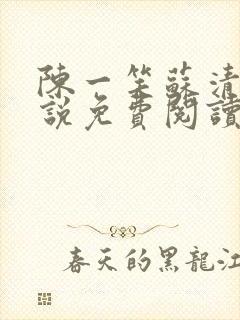 陳一笙蘇清
說免費閱讀
春天的黑龍江